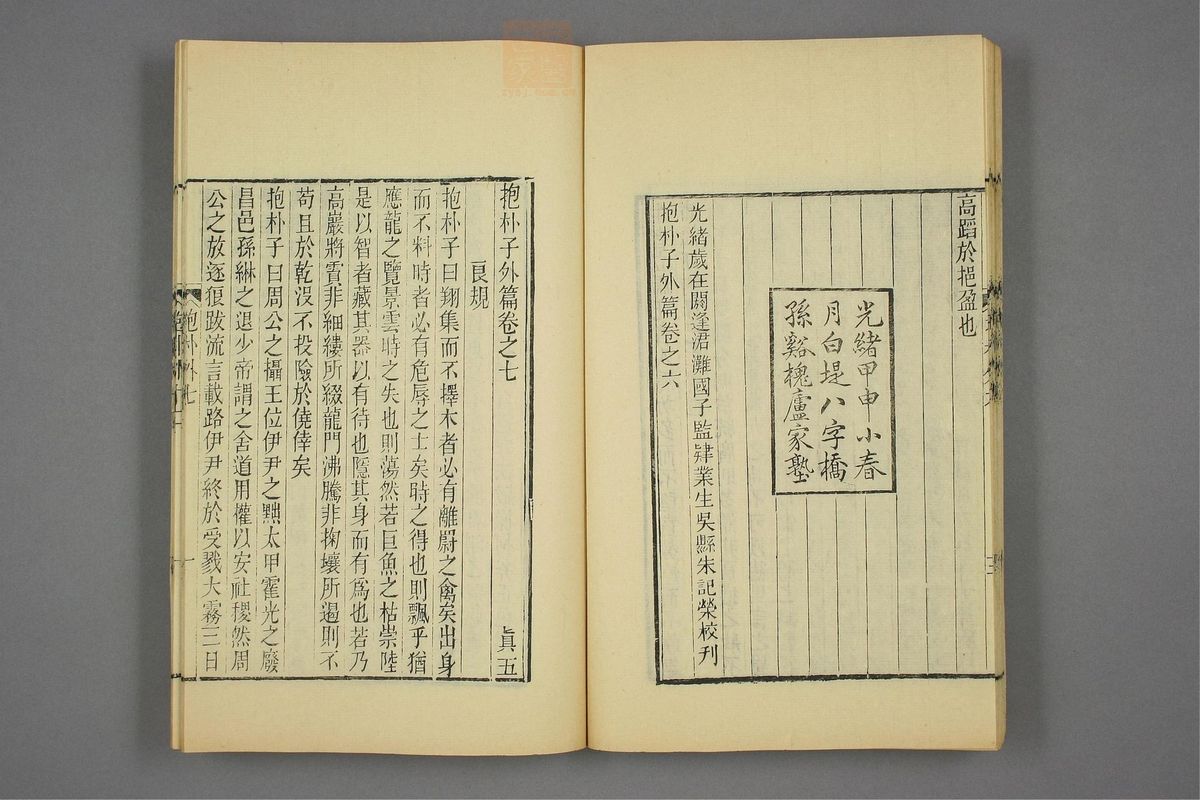 高蹈於挹盈也
光緒甲申小春
月白堤八字橋
孫谿槐廬家塾
光緒歲在閼逢涒灘國子監肄業生吳縣朱記榮校刊
抱朴子外篇卷之六
抱朴子外篇卷之七 眞五
良規
抱朴子曰翔集而不擇木者必有離罻之禽矣出身
而不料時者必有危辱之士矣時之得也則飄乎猶
應龍之覽景雲時之失也則蕩然若巨魚之枯崇陸
是以智者藏其器以有待也隱其身而有爲也若乃
高巖將霣非細縷所綴龍門沸騰非掬壤所遏則不
苟且於乾没不投險於僥倖矣
抱朴子曰周公之攝王位伊尹之黜太甲霍光之廢
昌邑孫綝之退少帝謂之舍道用權以安社稷然周
公之放逐狼跋流言載路伊尹終於受戮大霧三日
抱朴外七